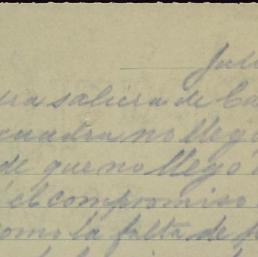 Juli
ra saliera de Ca
cuadra no llegó
de que no llegó a
el compromiso
como la falta de